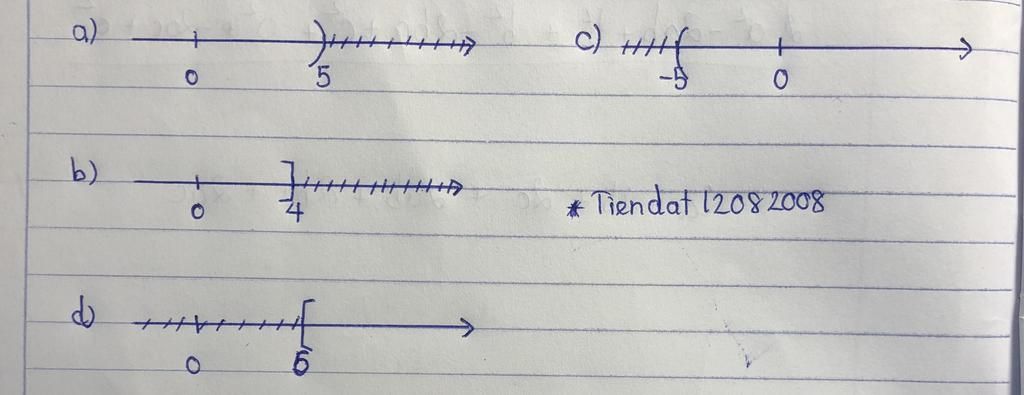 a)
0 5
c)
-5 0
b)
0 4
* Tiendat 12082008
d)
0 6